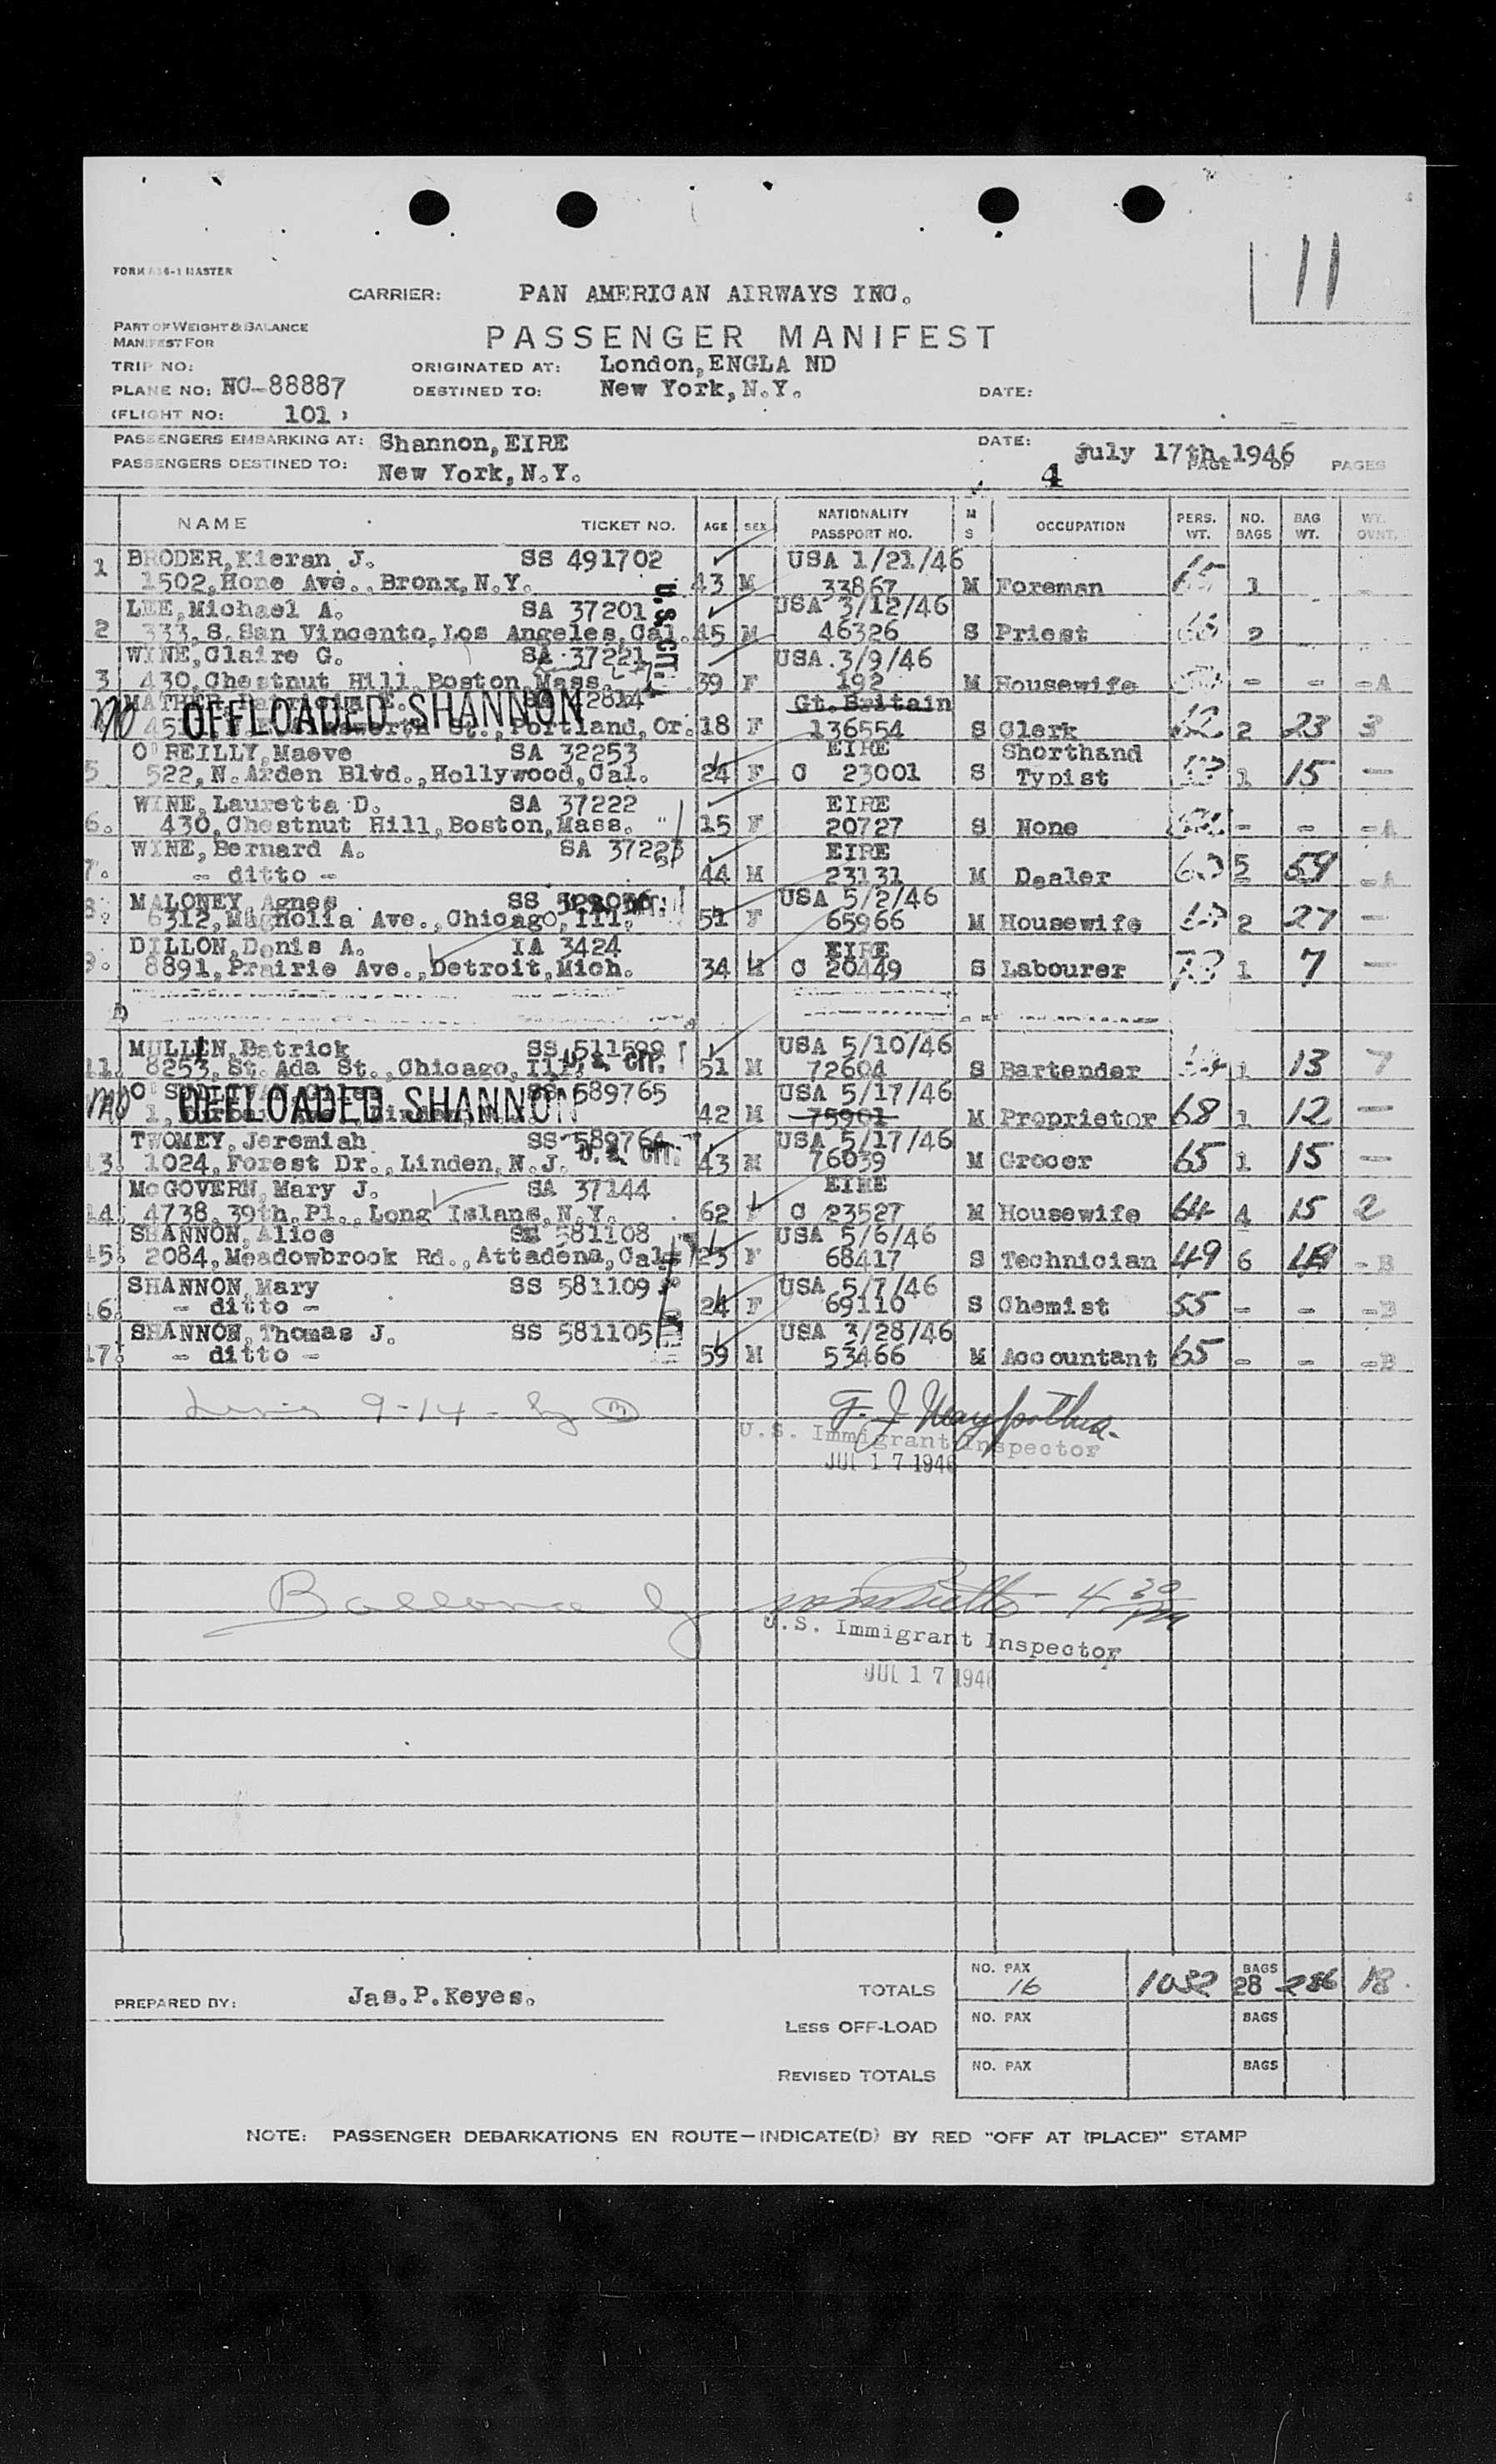 11
FORM 
-1 MASTER
CARRIER: PAN AMERICAN AIRWAYS INC.
PART OF WEIGHT & BALANCE
MANIFEST FOR
PASSENGER MANIFEST
TRIP NO: ORIGINATED AT: London,ENGLA ND
PLANE NO: NC-88887 DESTINED TO: New York,N.Y. DATE:
(FLIGHT NO: 101)
PASSENGERS EMBARKING AT: Shannon,EIRE DATE: July 17th.1946
PASSENGERS DESTINED TO: New York,N.Y. 4 PAGE OF PAGES
NAME TICKET NO. AGE SEX NATIONALITY PASSPORT NO. M S OCCUPATION PERS. WT. NO. BAGS BAG WT. WT. OVNT.
1 BRODER,Kieran J. SS 491702 USA 1/21/46
1502,Hone Ave.,Bronx,N.Y. 43 M 33867 M Foreman 65 1
LEE,Michael A. SA 37201 USA 3/12/46
2 333.S.San Vincento,Los Angeles,Cal. 45 M 46326 S Priest 2
U.S. CIT.
WINE,Claire G. SA 37221 USA.3/9/46
3 430,Chestnut Hill,Boston,Mass. 39 F 192 M Housewife - - -A
MATHER, E. 2814 Gt.Britain
no OFFLOADED SHANNON St.,Portland,Or. 18 F 136554 S Clerk 62 2 23 3
O'REILLY,Maeve SA 32253 EIRE Shorthand
5 522,N.Arden Blvd.,Hollywood,Cal. 24 F C 23001 S Typist 1 15 -
WINE,Lauretta D. SA 37222 EIRE
6. 430,Chestnut Hill,Boston,Mass. " 15 F 20727 S None - - -A
WINE,Bernard A. SA 37223 EIRE
7. - ditto - 44 M 23131 M Dealer 60 5 59 -A
MALONEY,Agnes SS USA 5/2/46
8. 6312,Magnolia Ave.,Chicago,Ill. 51 F 65966 M Housewife 2 27 -
DILLON,Denis A. IA 3424 EIRE
9. 8891,Prairie Ave.,Detroit,Mich. 34 M C 20449 S Labourer 73 1 7 -
MULLEN,Patrick SS 511599 USA 5/10/46
11. 8253,St.Ada St.,Chicago,Ill. U.S. CIT. 51 M 72604 S Bartender 1 13 7
O' SS 589765 USA 5/17/46
no OFFLOADED SHANNON 42 M 75901 M Proprietor 68 1 12 -
TWOMEY,Jeremiah SS 589764 USA 5/17/46
13. 1024,Forest Dr.,Linden,N.J. U.S. CIT. 43 M 76039 M Grocer 65 1 15 -
McGOVERN,Mary J. SA 37144 EIRE
14. 4738,39th.Pl.,Long Islans,N.Y. 62 F C 23527 M Housewife 64 4 15 2
SHANNON,Alice SS 581108 USA 5/6/46
15. 2084,Meadowbrook Rd.,Attadena,Cal. 23 F 68417 S Technician 49 6 48 -B
SHANNON,Mary SS 581109 USA 5/7/46
16. - ditto - 24 F 69110 S Chemist 55 - - -B
SHANNON,Thomas J. SS 581105 USA 3/28/46
17. - ditto - 59 M 53466 M Accountant 65 - - -B
9-14- by
U.S. Immigrant Inspector
JUL 17 1946
4 30 PM
U.S. Immigrant Inspector
JUL 17 194
PREPARED BY: Jas.P.Keyes.
TOTALS NO. PAX 16 1032 BAGS 28 286 18.
LESS OFF-LOAD NO. PAX BAGS
REVISED TOTALS NO. PAX BAGS
NOTE: PASSENGER DEBARKATIONS EN ROUTE—INDICATE(D) BY RED "OFF AT (PLACE)" STAMP